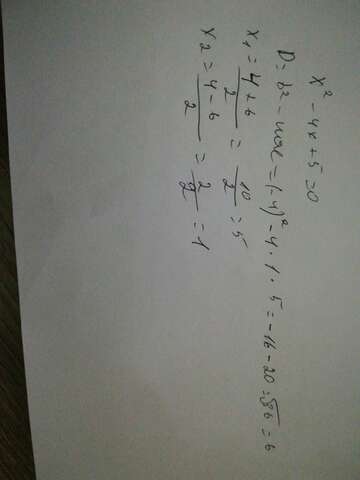 x² - 4x + 5 = 0
D = b² - 4ac = (-4)² - 4 · 1 · 5 = -16 - 20 = √36 = 6
x₁ = (4 + 6)/2 = 10/2 = 5
x₂ = (4 - 6)/2 = 2/2 = 1